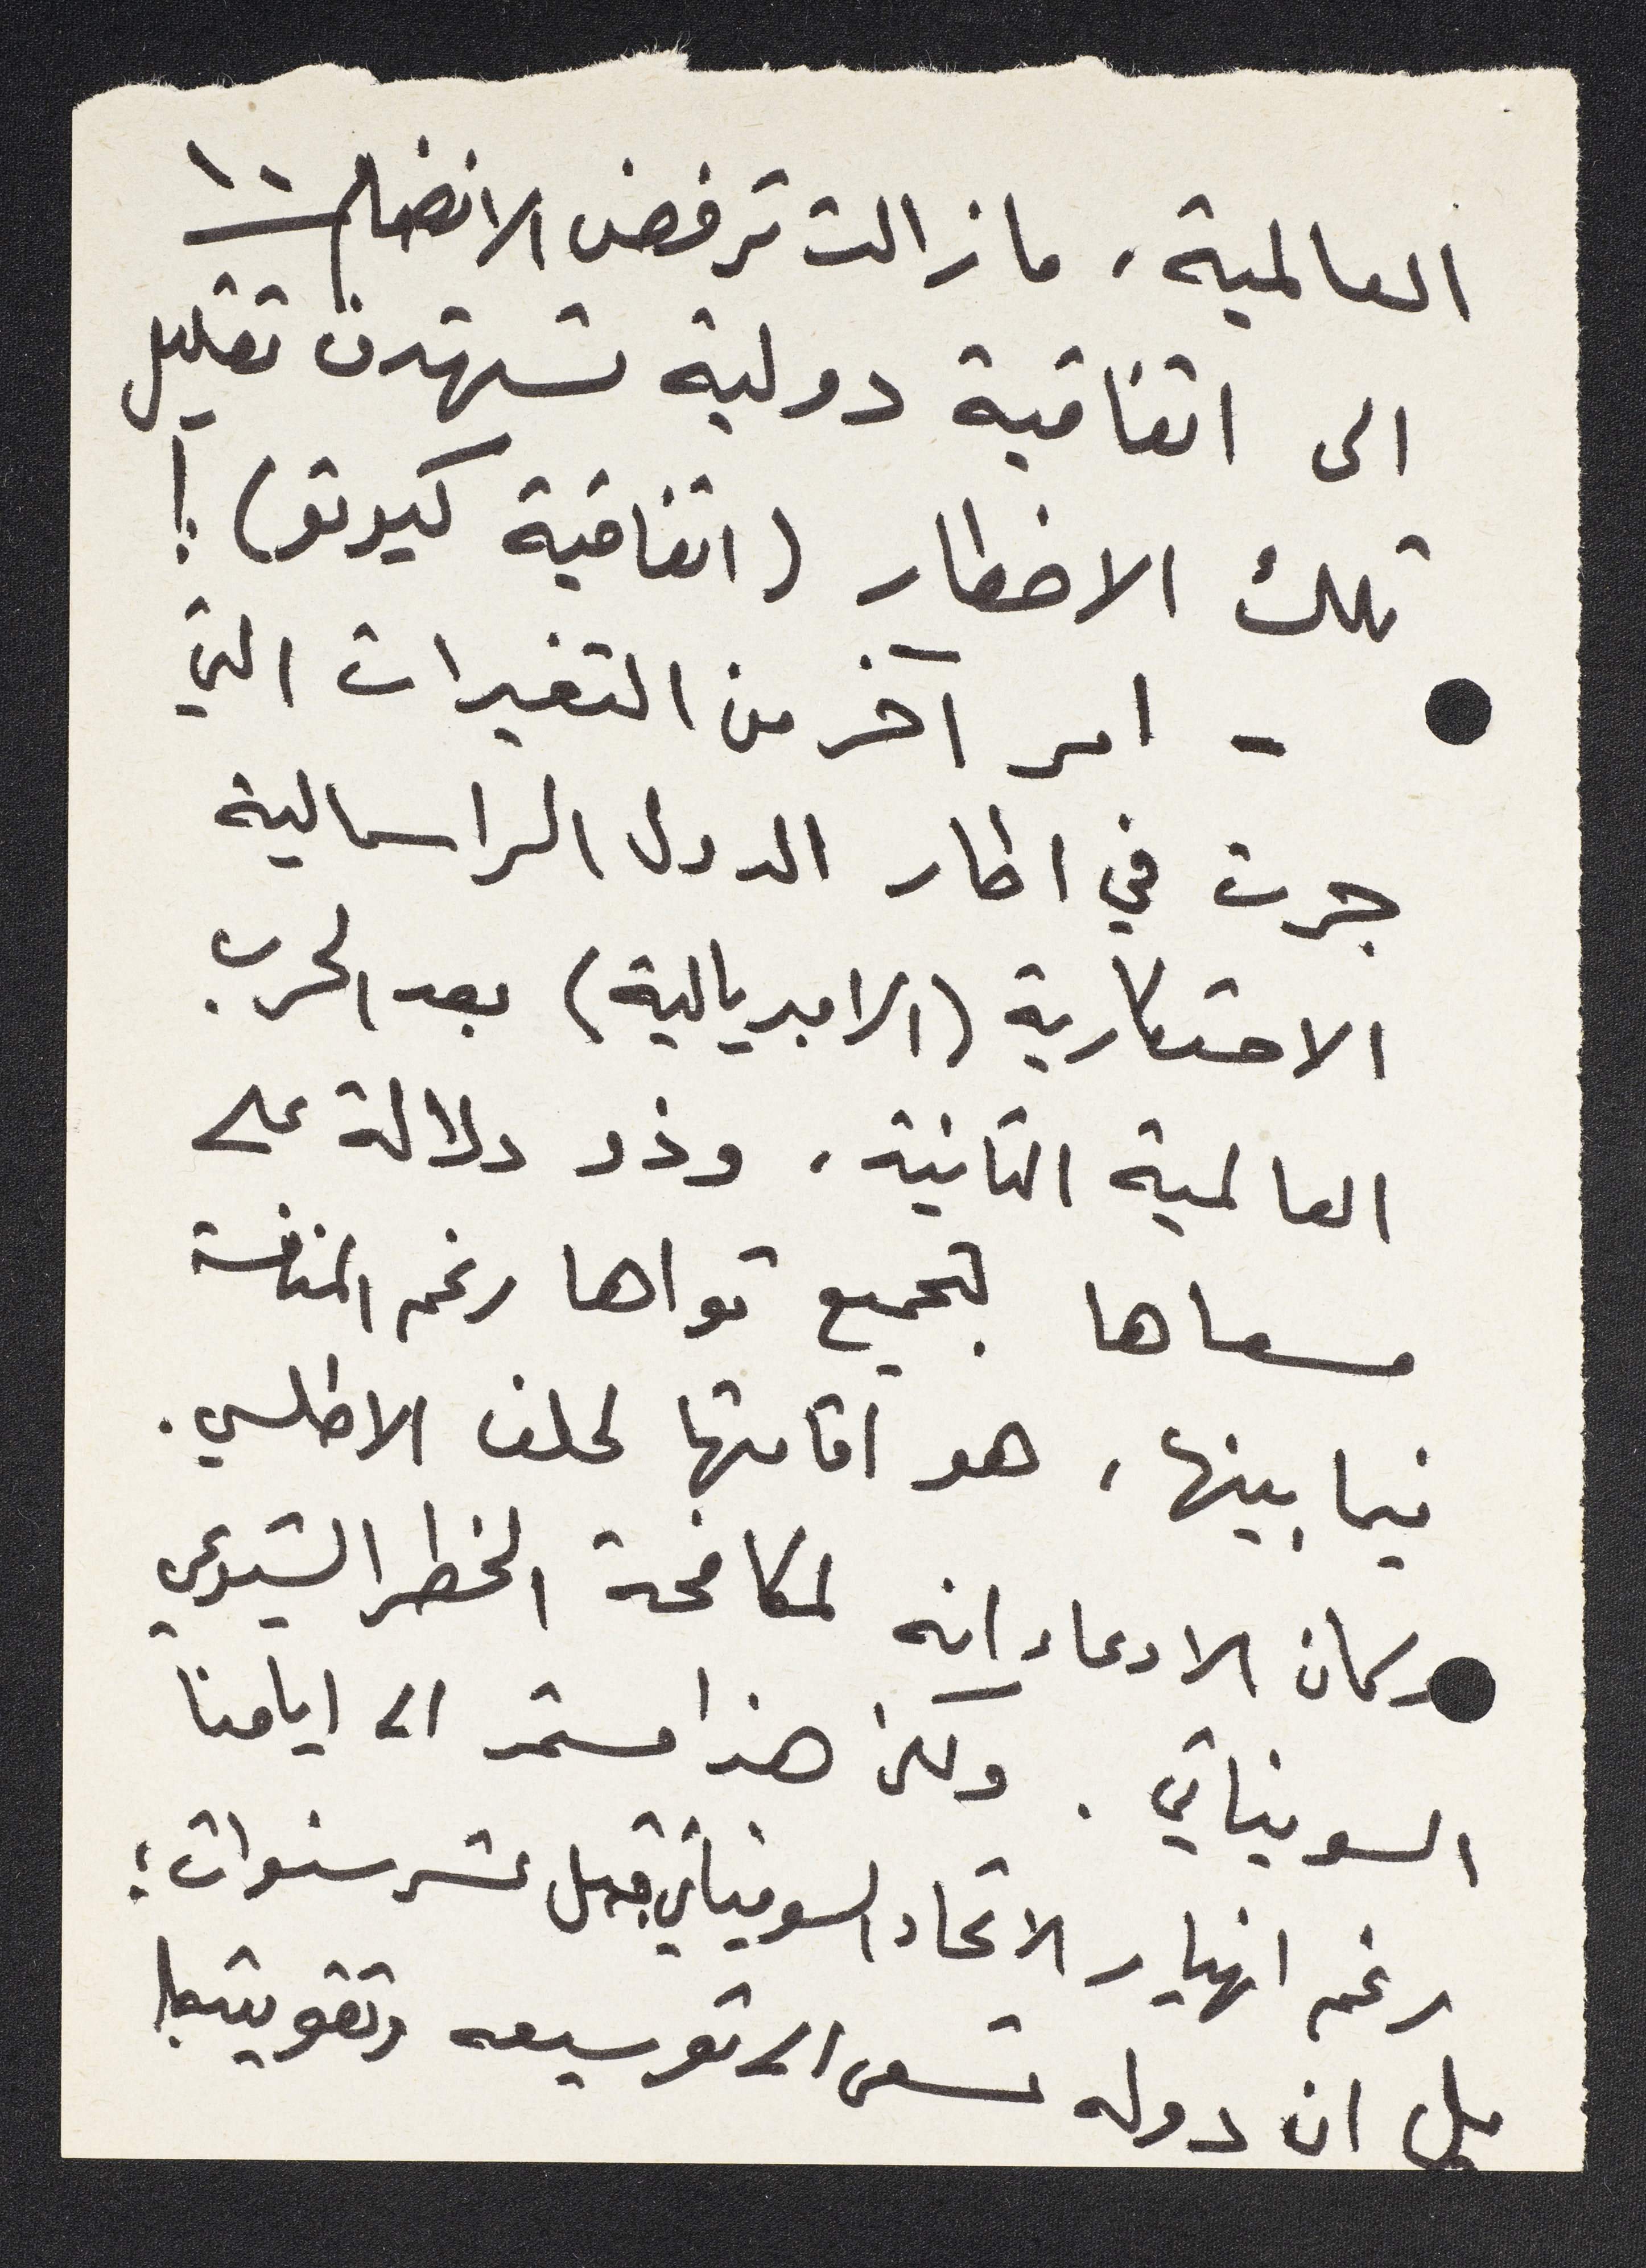 ١٠
العالمية، مازالت ترفض الانضمام
الى اتفاقية دولية تستهدف تقليل
تلك الاخطار (اتفاقية كيوتو)!
- امر آخر من التغيرات التي
جرت في اطار الدول الراسمالية
الاحتكارية (الامبريالية) بعد الحرب
العالمية الثانية، وذو دلالة على
مسعاها لتجميع قواها رغم المنافسة
فيما بينها، هو اقامتها لحلف الاطلسي.
وكان الادعاء انه لمكافحة الخطر الشيوعي
السوفياتي. ولكن هذا مستمر الى ايامنا
رغم انهيار الاتحاد السوفياتي قبل عشر سنوات؛
بل ان دوله تسعى الى توسيعه وتقويته!